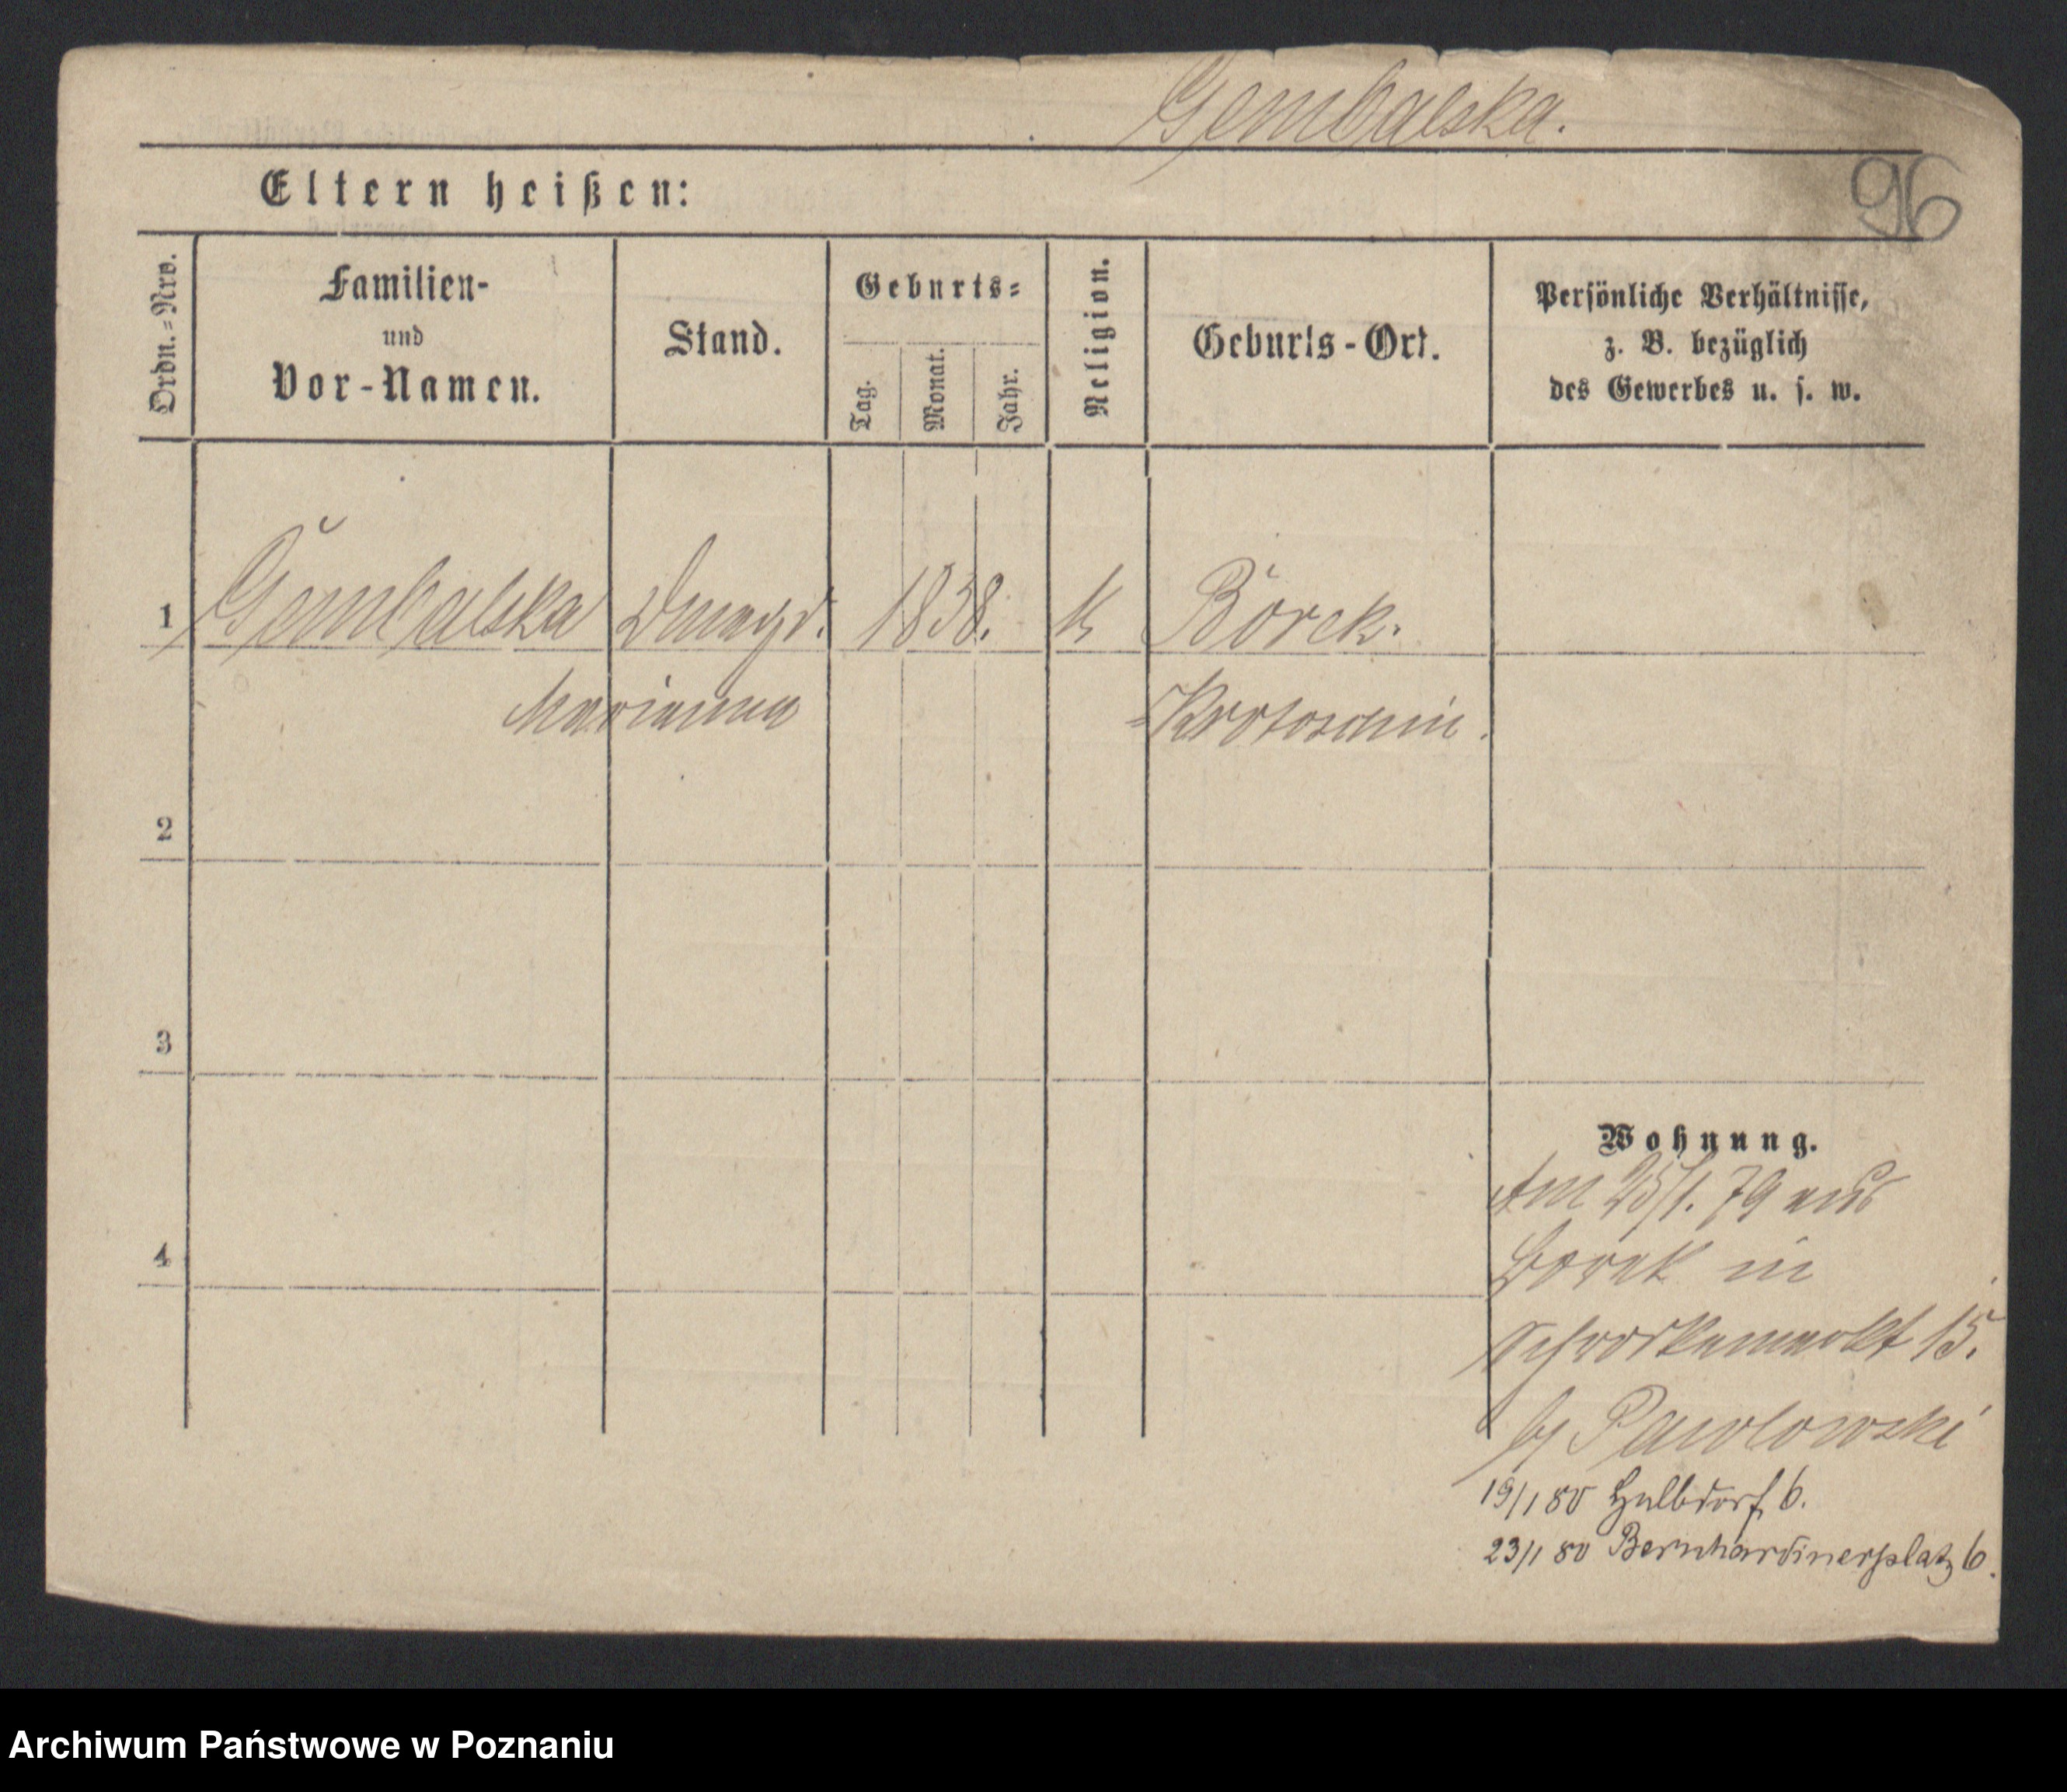 Gembalska.
96
Eltern heißen:
Ordn.=Nro.
Familien-
und
Vor-Namen.
Stand.
Geburts=
Tag.
Monat.
Jahr.
Religion.
Geburts-Ort.
Persönliche Verhältnisse,
z. B. bezüglich
des Gewerbes u. s. w.
1 Gembalska 1838. k Borek.
Marianna Krotoschin.
2
3
Wohnung.
Am 25/1. 79 aus
4
Borek in
15.
Pawlowski
19/1 80 Halbdorf 6.
23/1 80 Bernhardinerplatz 6.
Archiwum Państwowe w Poznaniu